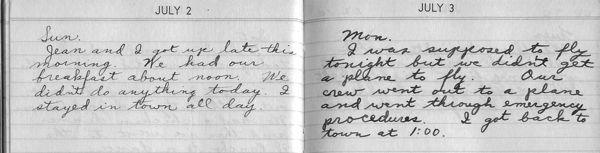 JULY 2
Sun.
Jean and I got up late this
morning. We had our
breakfast about noon. We
didn't do anything today. I
stayed in town all day.
JULY 3
Mon.
I was supposed to fly
tonight but we didn't get
a plane to fly. Our
crew went out to a plane
and went through emergency
procedures. I got back to
town at 1:00.